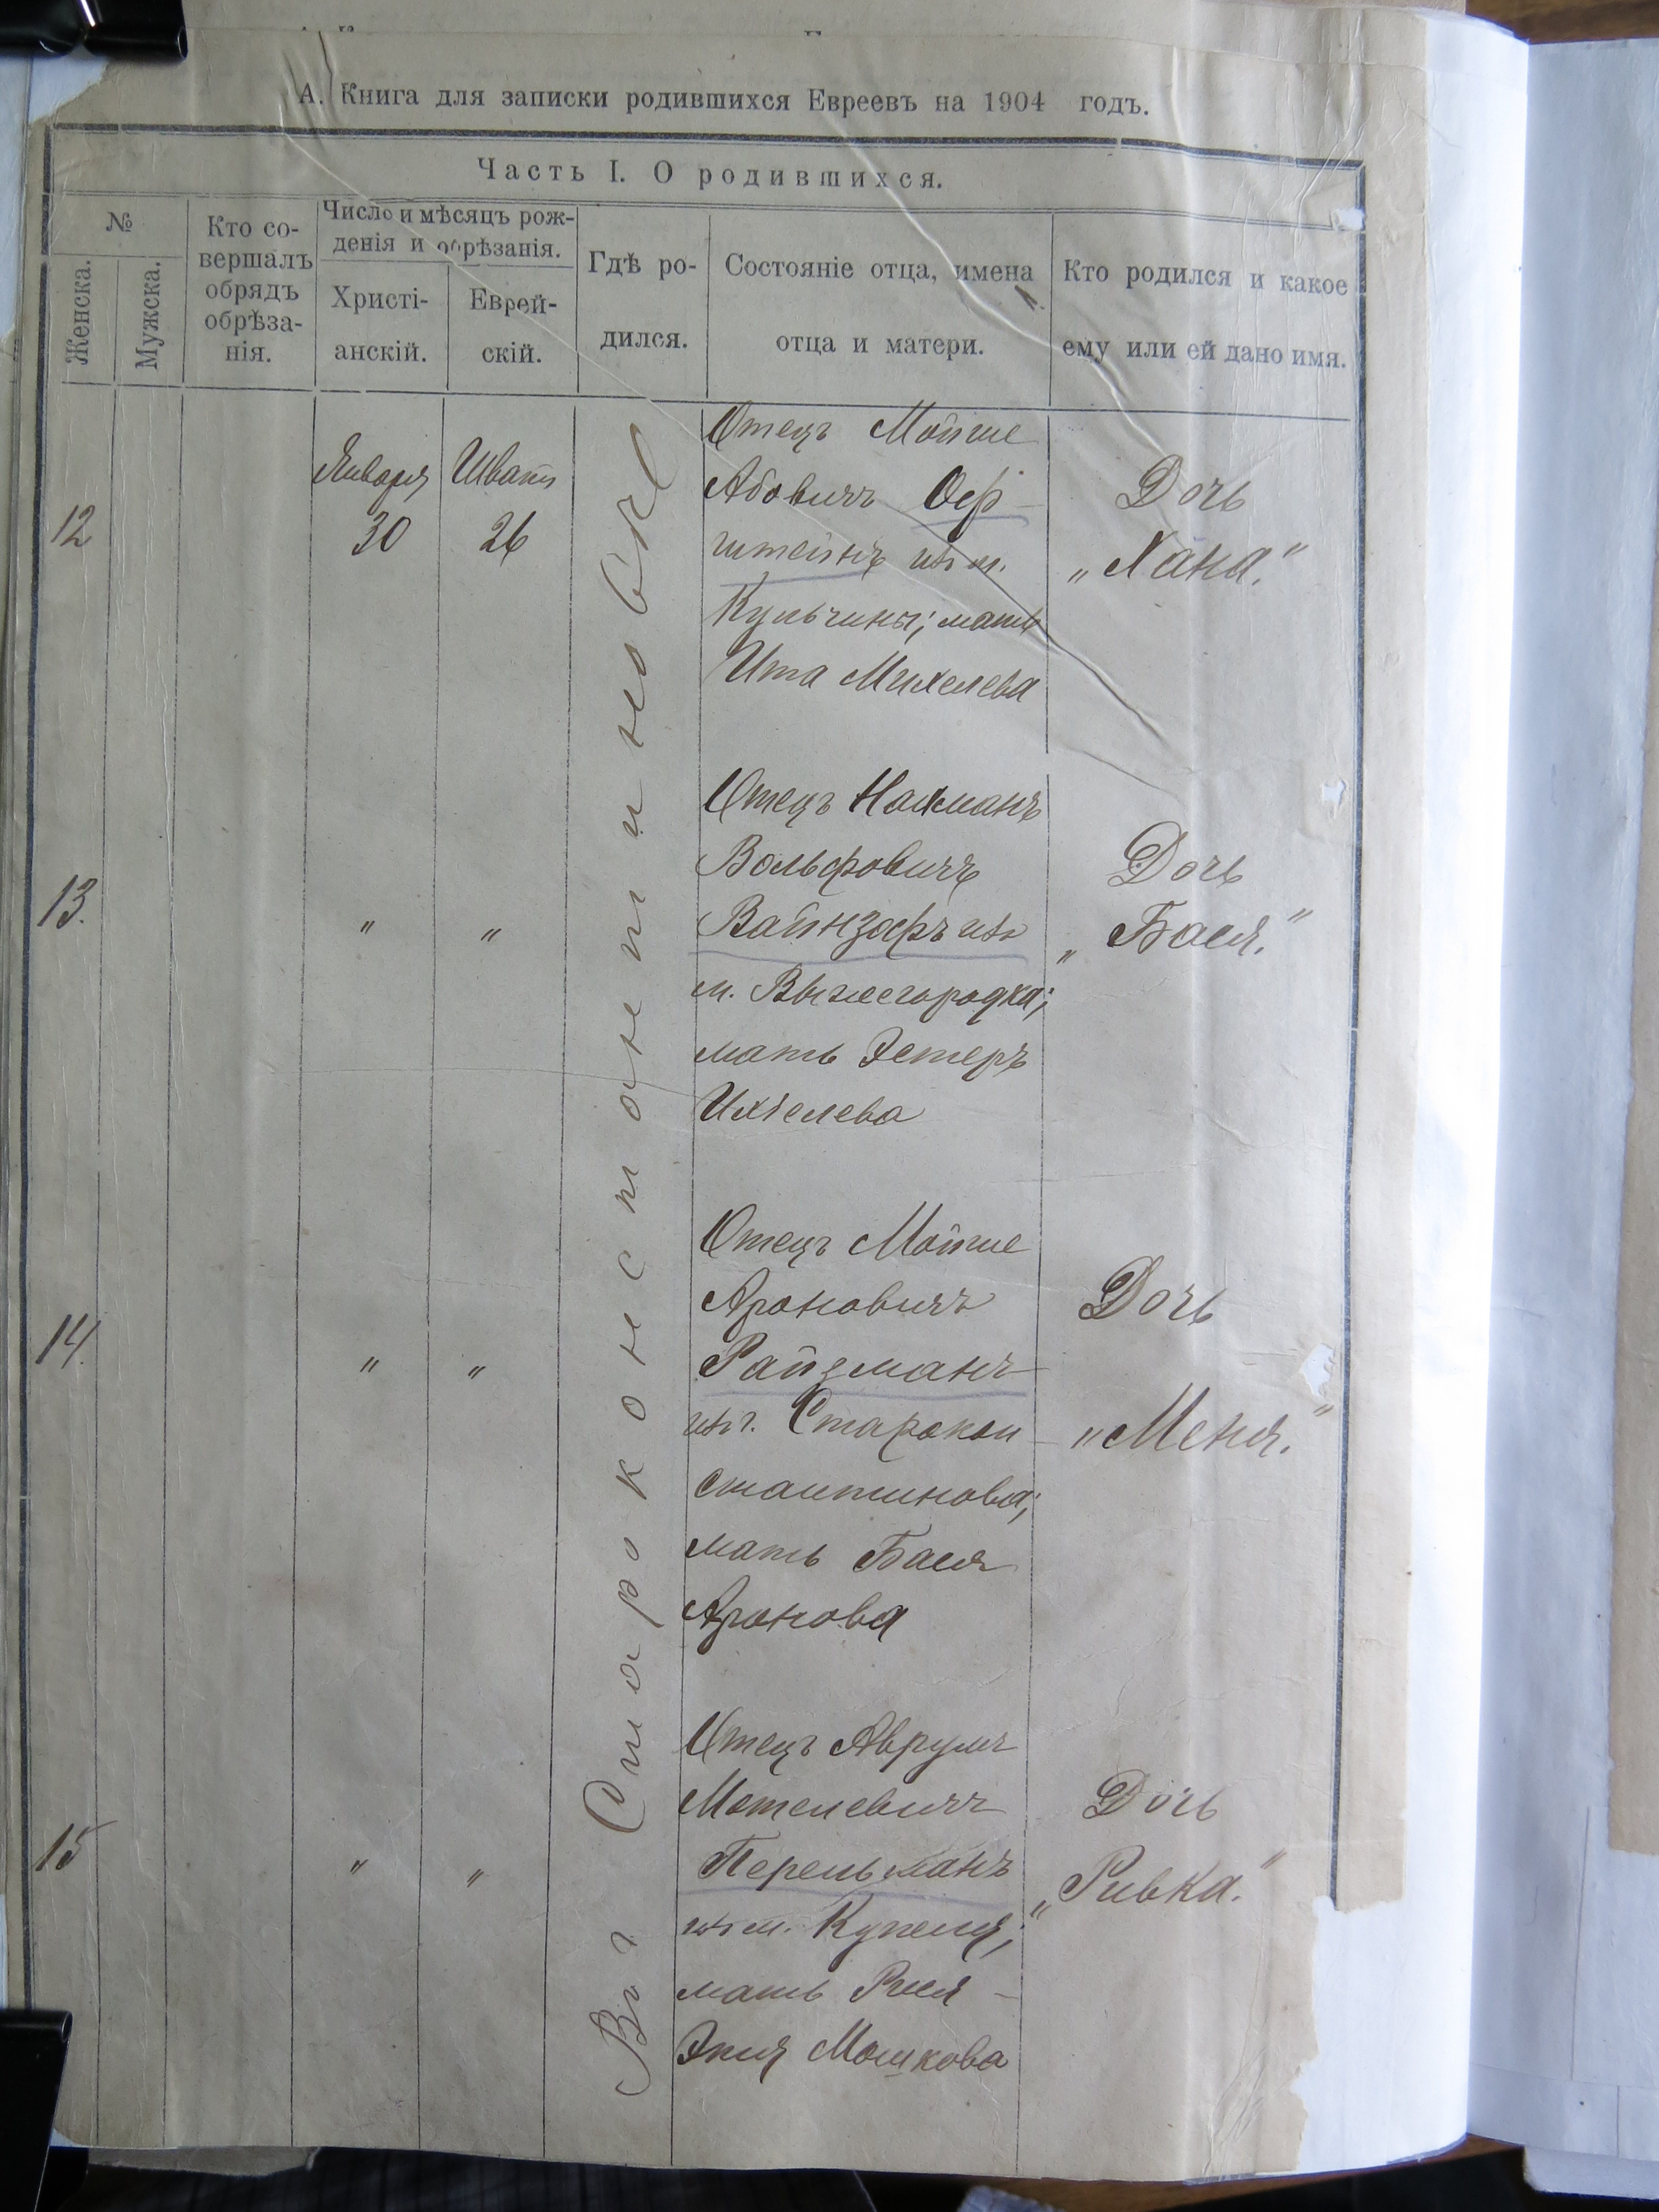 А. Книга для записки родившихся Евреевъ на 1904 годъ.
Часть I. О родившихся.
№
Женска.
Мужска.
Кто со-
вершалъ
обрядъ
обрѣза-
нія.
Число и мѣсяцъ рож-
денія и обрѣзанія.
Христі-
анскій.
Еврей-
скій.
Гдѣ ро-
дился.
Состояніе отца, имена
отца и матери.
Кто родился и какое
ему или ей дано имя.
Въ г. Староконстантиновѣ
12
Января
30
Шватъ
26
Отецъ Мойше
Абовичъ Оф-
штейнъ изъ м.
Кульчины; мать
Ита Михелева
Дочь
„Хана."
13.
"
"
Отецъ Нахманъ
Вольфовичъ
Вайнзофъ изъ
м. Вышегородка;
мать Эстеръ
Ихіелева
Дочь
„Бася."
14.
"
"
Отецъ Мойше
Ароновичъ
Райзманъ
изъ г. Старокон-
стантинова;
мать Бася
Аронова
Дочь
„Меня."
15
"
"
Отецъ Аврумъ
Мотелевичъ
Перельманъ
изъ м. Купеля;
мать Рися-
Эня Мошкова
Дочь
„Ривка."